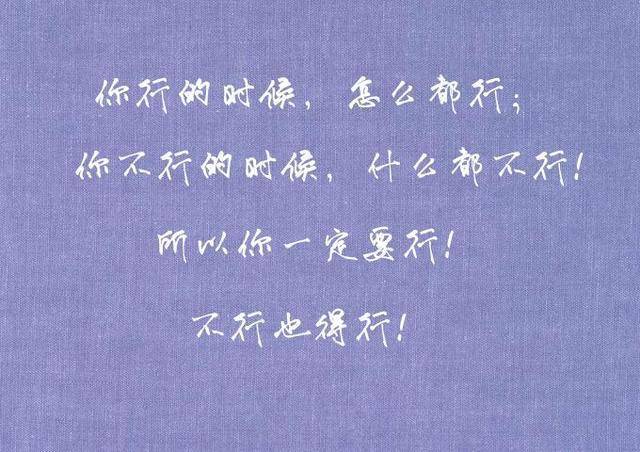 你行的时候，怎么都行；
你不行的时候，什么都不行！
所以你一定要行！
不行也得行！